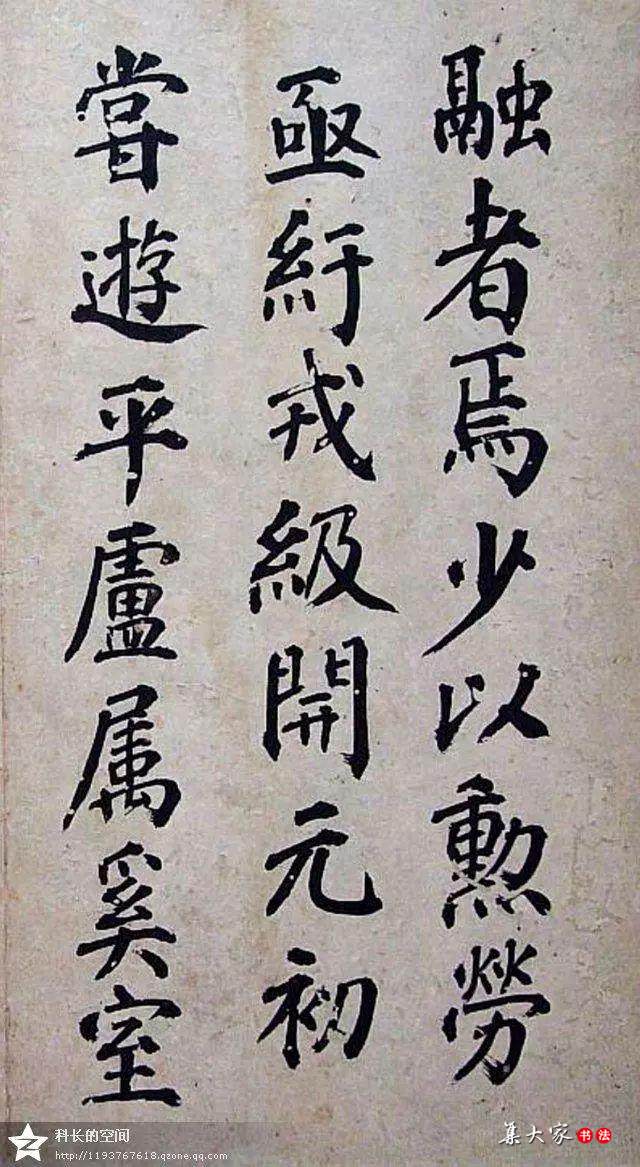 融者焉少以勲勞
亟紆戎級開元初
嘗遊平盧属奚室
科长的空间
http://1193767618.qzone.qq.com
集大家书法